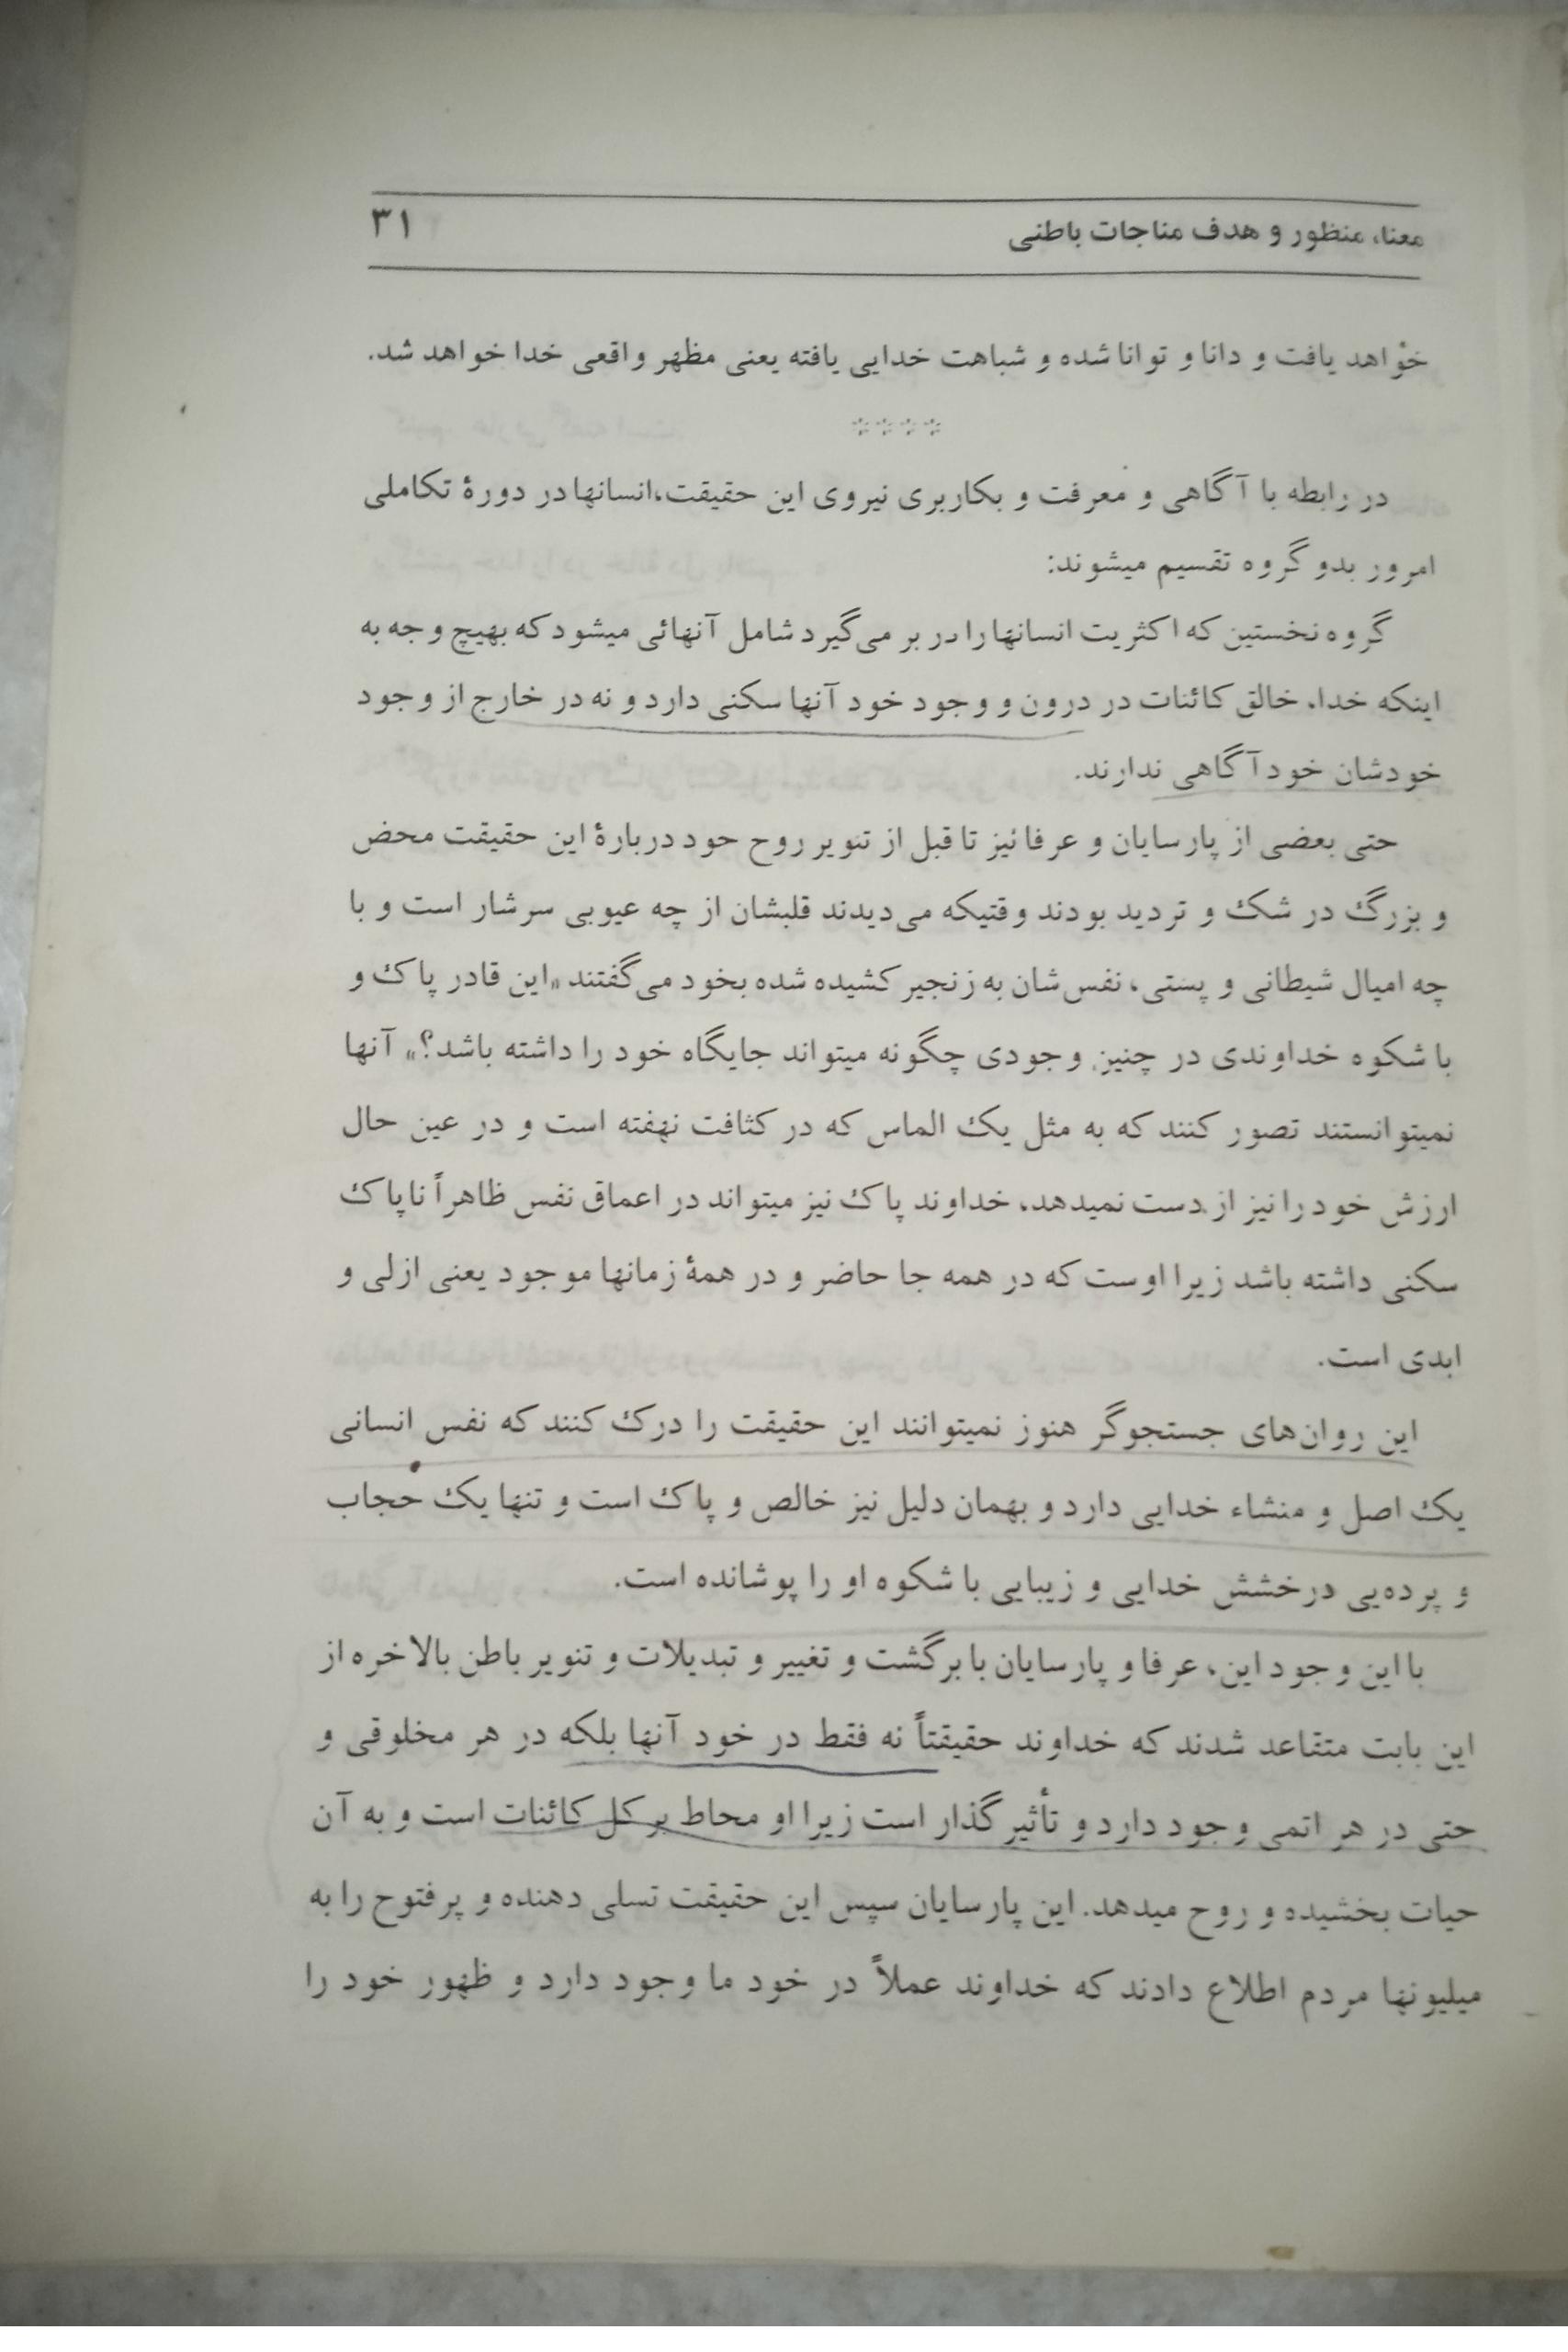 معنا، منظور و هدف مناجات باطنی ۳۱
خواهد یافت و دانا و توانا شده و شباهت خدایی یافته یعنی مظهر واقعی خدا خواهد شد.
****
در رابطه با آگاهی و معرفت و بکاربری نیروی این حقیقت، انسانها در دورۀ تکاملی
امرور بدو گروه تقسیم میشوند:
گروه نخستین که اکثریت انسانها را در بر می‌گیرد شامل آنهائی میشود که بهیچ وجه به
اینکه خدا، خالق کائنات در درون و وجود خود آنها سکنی دارد و نه در خارج از وجود
خودشان خود آگاهی ندارند.
حتی بعضی از پارسایان و عرفا نیز تا قبل از تنویر روح حود دربارۀ این حقیقت محض
و بزرگ در شک و تردید بودند وقتیکه می‌دیدند قلبشان از چه عیوبی سرشار است و با
چه امیال شیطانی و پستی، نفس‌شان به زنجیر کشیده شده بخود می‌گفتند «این قادر پاک و
با شکوه خداوندی در چنین وجودی چگونه میتواند جایگاه خود را داشته باشد؟» آنها
نمیتوانستند تصور کنند که به مثل یک الماس که در کثافت نهفته است و در عین حال
ارزش خود را نیز از دست نمیدهد، خداوند پاک نیز میتواند در اعماق نفس ظاهراً ناپاک
سکنی داشته باشد زیرا اوست که در همه جا حاضر و در همۀ زمانها موجود یعنی ازلی و
ابدی است.
این روان‌های جستجوگر هنوز نمیتوانند این حقیقت را درک کنند که نفس انسانی
یک اصل و منشاء خدایی دارد و بهمان دلیل نیز خالص و پاک است و تنها یک حجاب
و پرده‌یی درخشش خدایی و زیبایی با شکوه او را پوشانده است.
با این وجود این، عرفا و پارسایان با برگشت و تغییر و تبدیلات و تنویر باطن بالاخره از
این بابت متقاعد شدند که خداوند حقیقتاً نه فقط در خود آنها بلکه در هر مخلوقی و
حتی در هر اتمی وجود دارد و تأثیر گذار است زیرا او محاط بر کل کائنات است و به آن
حیات بخشیده و روح میدهد. این پارسایان سپس این حقیقت تسلی دهنده و پر فتوح را به
میلیونها مردم اطلاع دادند که خداوند عملاً در خود ما وجود دارد و ظهور خود را